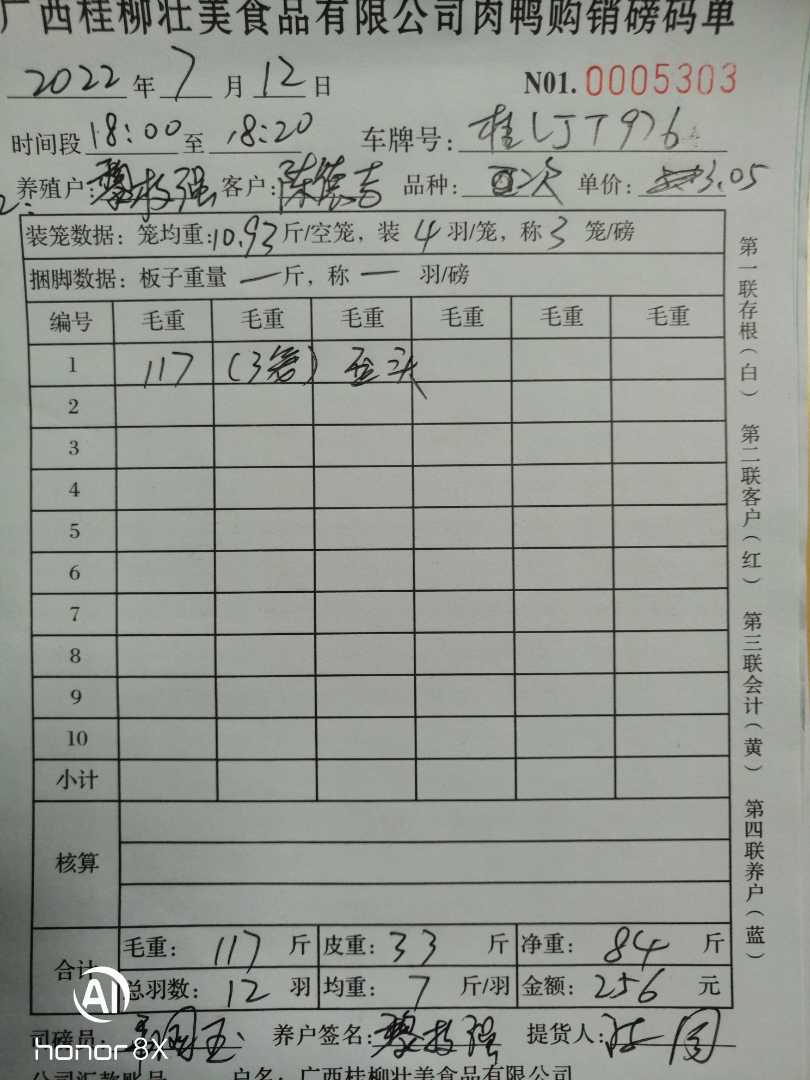 广西桂柳壮美食品有限公司肉鸭购销磅码单
2022年7月12日 N01.0005303
时间段18:00至18:20 车牌号:桂LJT976
养殖户:黎技强 客户: 品种: 次 单价:3.05
装笼数据：笼均重:10.93斤/空笼，装4羽/笼，称3笼/磅
捆脚数据：板子重量一斤，称一羽/磅
编号 毛重 毛重 毛重 毛重 毛重 毛重
1 117 (3笼)
2
3
4
5
6
7
8
9
10
小计
核算
合计 毛重：117斤 皮重：33斤 净重：84斤
总羽数：12羽 均重：7斤/羽 金额：256元
司磅员: 养户签名:黎技强 提货人:
公司汇款账号 户名：广西桂柳壮美食品有限公司
第一联存根（白） 第二联客户（红） 第三联会计（黄） 第四联养户（蓝）
AI
honor 8X